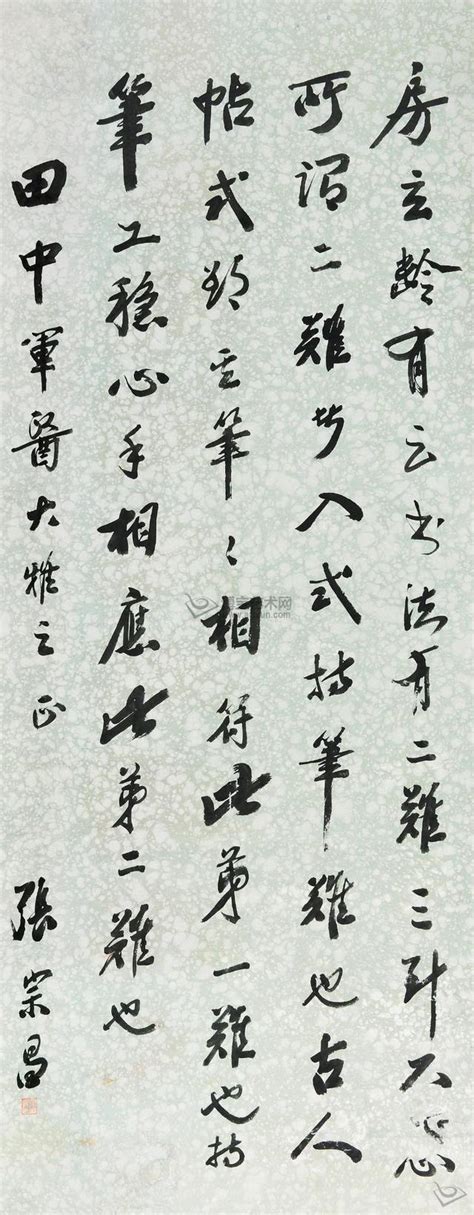 房玄齡有云书法有二難三不
所謂二難入式持筆難也古人
帖式筆々相符此第一難也持
筆工穩心手相應此第二難也
田中軍醫大雅之正
張宗昌